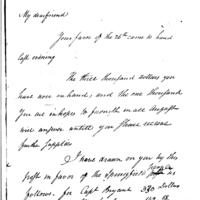 My dear friend
Your favor of the 26th came to hand
last evening
The three thousand dollars you
have now on hand, and the one thousand
you are in hopes to
will answer untill you please
further supplies
I have drawn on you by this
in favor of the Springfield
follows. for Capt Bryant 330 Dollars